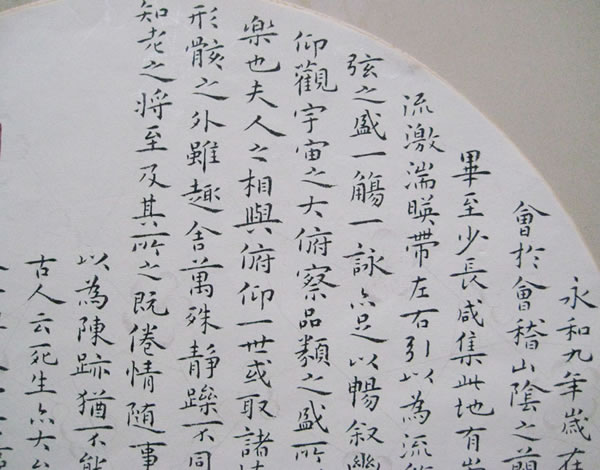 永和九年歲在
會於會稽山陰之蘭
畢至少長咸集此地有崇
流激湍暎帶左右引以為流
弦之盛一觴一詠亦足以暢叙幽
仰觀宇宙之大俯察品類之盛所
樂也夫人之相與俯仰一世或取諸
形骸之外雖趣舍萬殊靜躁不同
知老之將至及其所之既倦情随事
以為陳跡猶不能
古人云死生亦大